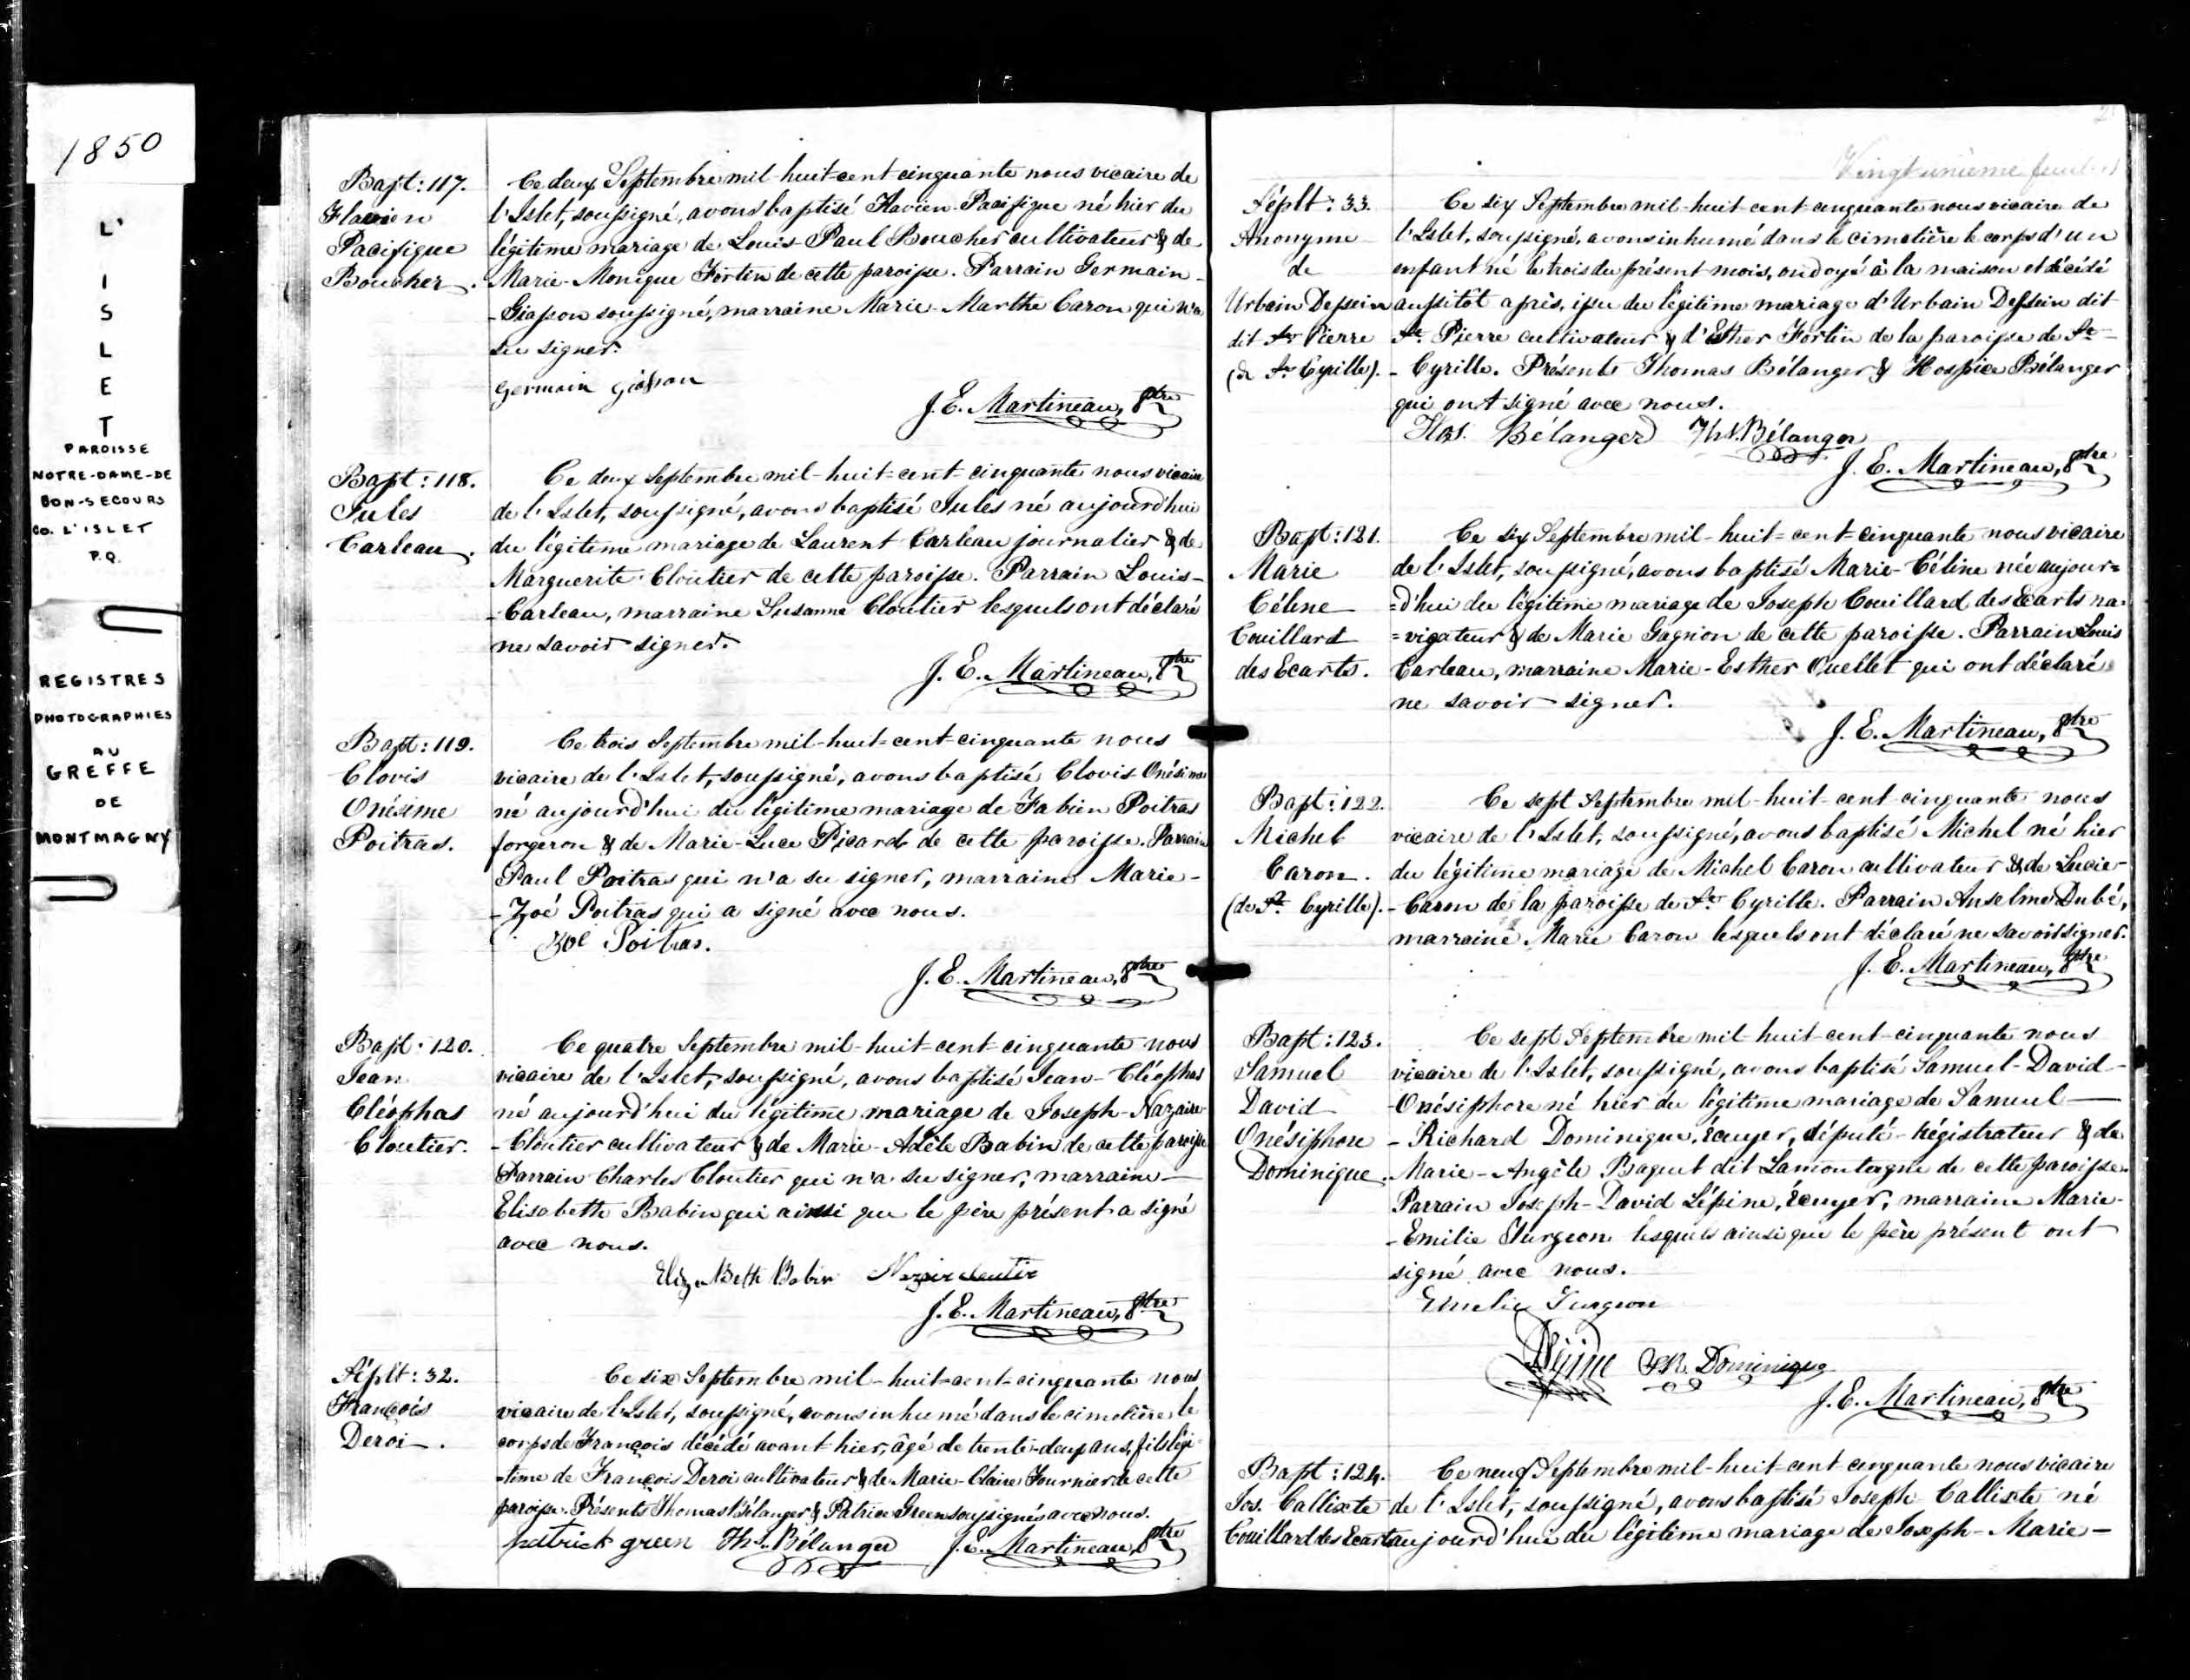 1850
L'
I
S
L
E
T
PAROISSE
NOTRE-DAME-DE
BON-SECOURS
CO. L'ISLET
P.Q.
REGISTRES
PHOTOGRAPHIES
AU
GREFFE
DE
MONTMAGNY
Bapt: 117.
Flavien
Pacifique
Boucher.
Ce deux Septembre mil-huit-cent cinquante nous vicaire de
l'Islet, soussigné, avons baptisé Flavien-Pacifique né hier du
légitime mariage de Louis-Paul Boucher cultivateur & de
Marie-Monique Fortin de cette paroisse. Parrain Germain-
-Giasson soussigné, marraine Marie-Marthe Caron qui n'a
su signer.
Germain Giasson
J. E. Martineau, Ptre
Bapt: 118.
Jules
Carleau.
Ce deux Septembre mil-huit-cent-cinquante nous vicaire
de l'Islet, soussigné, avons baptisé Jules né aujourd'hui
du légitime mariage de Laurent Carleau journalier & de
Marguerite Cloutier de cette paroisse. Parrain Louis-
-Carleau, marraine Susanne Cloutier lesquels ont déclaré
ne savoir signer.
J. E. Martineau, Ptre
Bapt: 119.
Clovis
Onésime
Poitras.
Ce trois Septembre mil-huit-cent-cinquante nous
vicaire de l'Islet, soussigné, avons baptisé Clovis-Onésime
né aujourd'hui du légitime mariage de Fabien Poitras
forgeron & de Marie-Luce Picard de cette paroisse. Parrain
Paul Poitras qui n'a su signer, marraine Marie-
-Zoé Poitras qui a signé avec nous.
Zoé Poitras.
J. E. Martineau, Ptre
Bapt: 120.
Jean
Cléophas
Cloutier.
Ce quatre Septembre mil-huit-cent-cinquante nous
vicaire de l'Islet, soussigné, avons baptisé Jean-Cléophas
né aujourd'hui du légitime mariage de Joseph-Nazaire-
-Cloutier cultivateur & de Marie-Adèle Babin de cette paroisse
Parrain Charles Cloutier qui n'a su signer, marraine
Elisabeth Babin qui ainsi que le père présent a signé
avec nous.
Elizabeth Babin
J. E. Martineau, Ptre
Séplt: 32.
François
Deroi.
Ce six Septembre mil-huit-cent-cinquante nous
vicaire de l'Islet, soussigné, avons inhumé dans le cimetière le
corps de François décédé avant hier, âgé de trente-deux ans, fils légi-
-time de François Deroi cultivateur & de Marie-Claire Fournier de cette
paroisse. Présents Thomas Bélanger & Patrice Green soussignés avec nous.
patrick green Ths. Bélanger J. E. Martineau, Ptre
Vingt unième feuillet
Séplt: 33.
Anonyme
de
Urbain Dessein
dit St. Pierre
(de St. Cyrille).
Ce six Septembre mil-huit-cent cinquante nous vicaire de
l'Islet, soussigné, avons inhumé dans le cimetière le corps d'un
enfant né le trois du présent mois, ondoyé à la maison et décédé
aussitôt après, issu du légitime mariage d'Urbain Dessein dit
St. Pierre cultivateur & d'Esther Fortin de la paroisse de St-
-Cyrille. Présents Thomas Bélanger & Hospice Bélanger
qui ont signé avec nous.
Hos. Bélanger Ths. Bélanger
J. E. Martineau, Ptre
Bapt: 121.
Marie
Céline
Couillard
des Ecarts.
Ce six Septembre mil-huit-cent-cinquante nous vicaire
de l'Islet, soussigné, avons baptisé Marie-Céline née aujour=
=d'hui du légitime mariage de Joseph Couillard des Ecarts na=
=vigateur & de Marie Gagnon de cette paroisse. Parrain Louis
Carleau, marraine Marie-Esther Ouellet qui ont déclaré
ne savoir signer.
J. E. Martineau, Ptre
Bapt: 122.
Michel
Caron.
(de St. Cyrille).
Ce sept Septembre mil-huit-cent-cinquante nous
vicaire de l'Islet, soussigné, avons baptisé Michel né hier
du légitime mariage de Michel Caron cultivateur & de Lucie-
-Caron de la paroisse de St. Cyrille. Parrain Anselme Dubé,
marraine Marie Caron lesquels ont déclaré ne savoir signer.
J. E. Martineau, Ptre
Bapt: 123.
Samuel
David
Onésiphore
Dominique.
Ce sept Septembre mil-huit-cent-cinquante nous
vicaire de l'Islet, soussigné, avons baptisé Samuel-David-
-Onésiphore né hier du légitime mariage de Samuel
-Richard Dominique, écuyer, député-Régistrateur & de
Marie-Angèle Paquet dit Lamontagne de cette paroisse.
Parrain Joseph-David Lépine, écuyer, marraine Marie-
-Emilie Turgeon lesquels ainsi que le père présent ont
signé avec nous.
Emelie Turgeon
Lépine S.R. Dominique
J. E. Martineau, Ptre
Bapt: 124.
Jos. Callixte
Couillard des Ecarts
Ce neuf Septembre mil-huit-cent-cinquante nous vicaire
de l'Islet, soussigné, avons baptisé Joseph Callixte né
aujourd'hui du légitime mariage de Joseph-Marie-